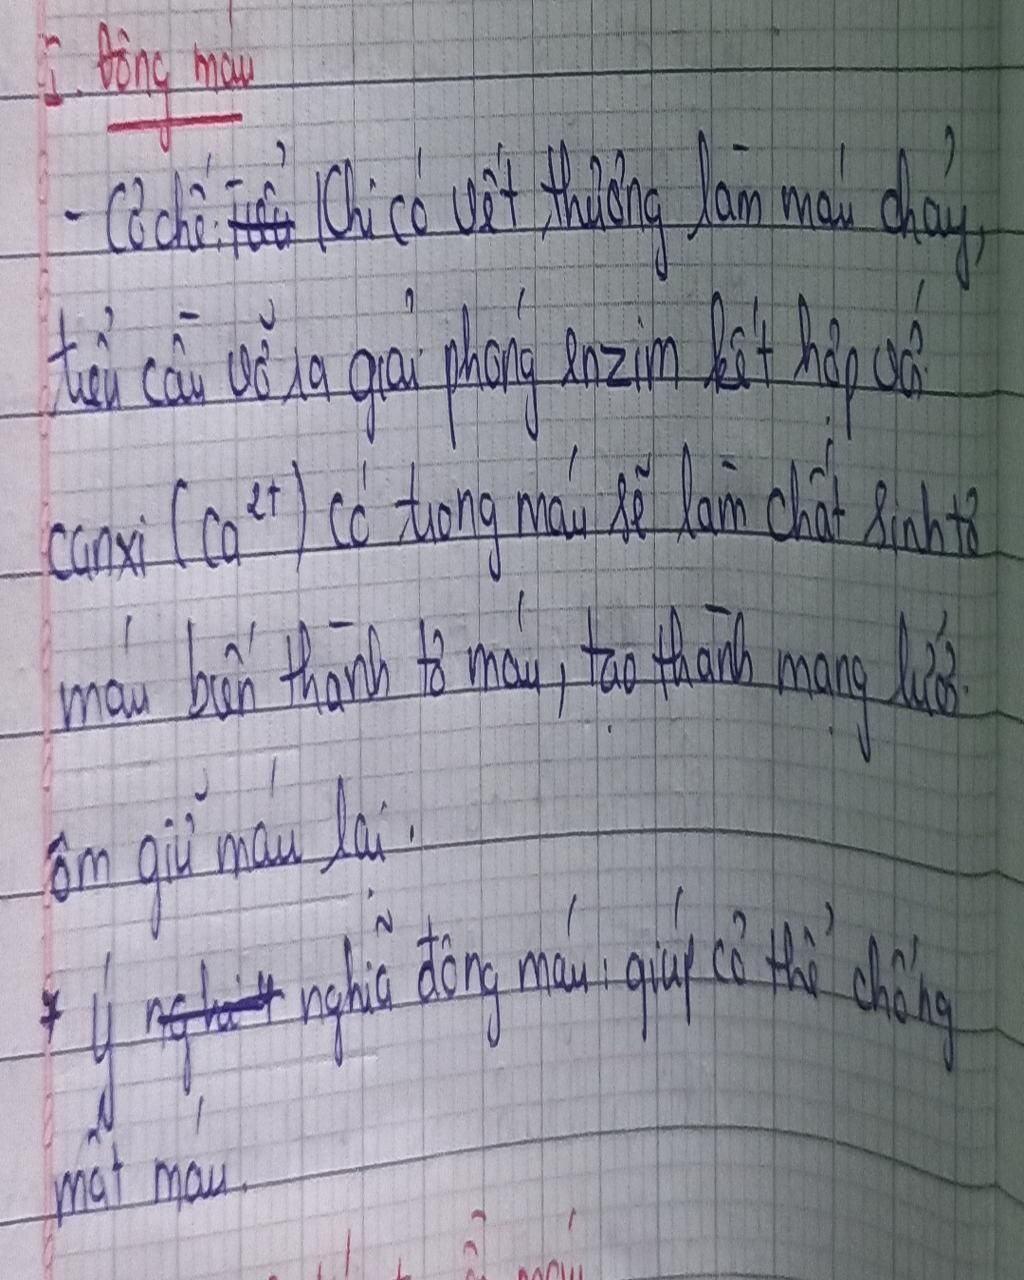 I. Đông máu
- Cơ chế: Khi có vết thương làm máu chảy,
tiểu cầu vỡ ra giải phóng enzim kết hợp với
canxi (Ca2+) có trong máu sẽ làm chất sinh tơ
máu biến thành tơ máu, tạo thành mạng lưới
ôm giữ máu lại.
* Ý nghĩa đông máu: giúp cơ thể chống
mất máu.